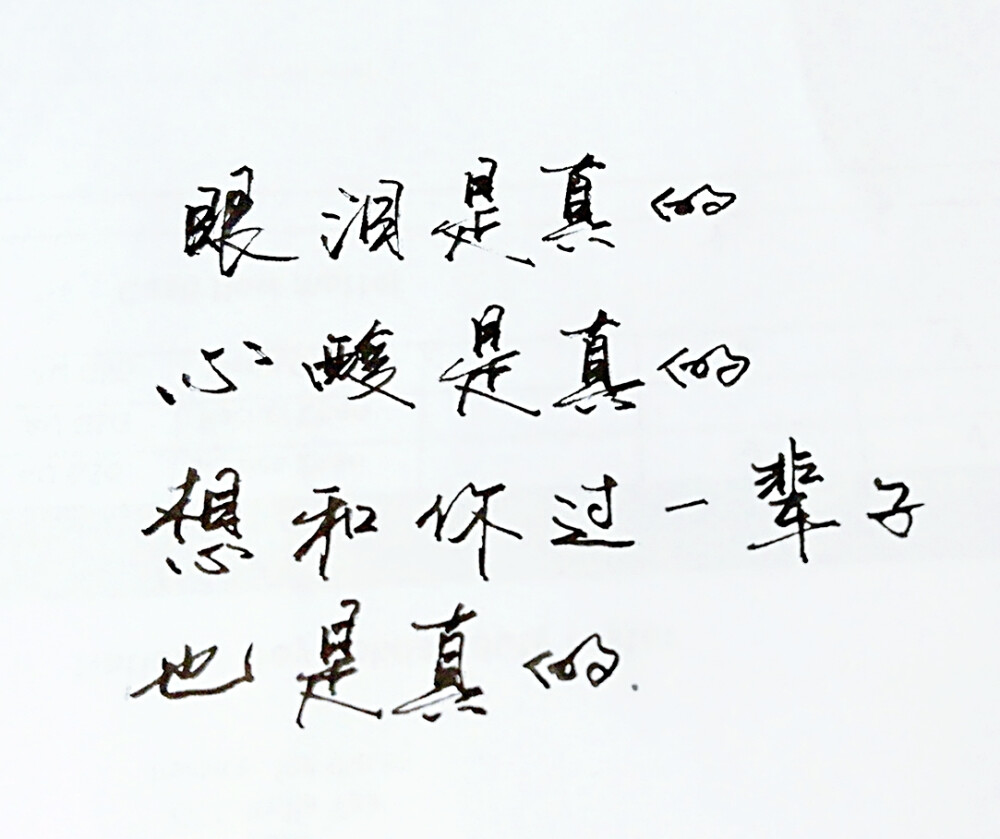 眼泪是真的
心酸是真的
想和你过一辈子
也是真的.